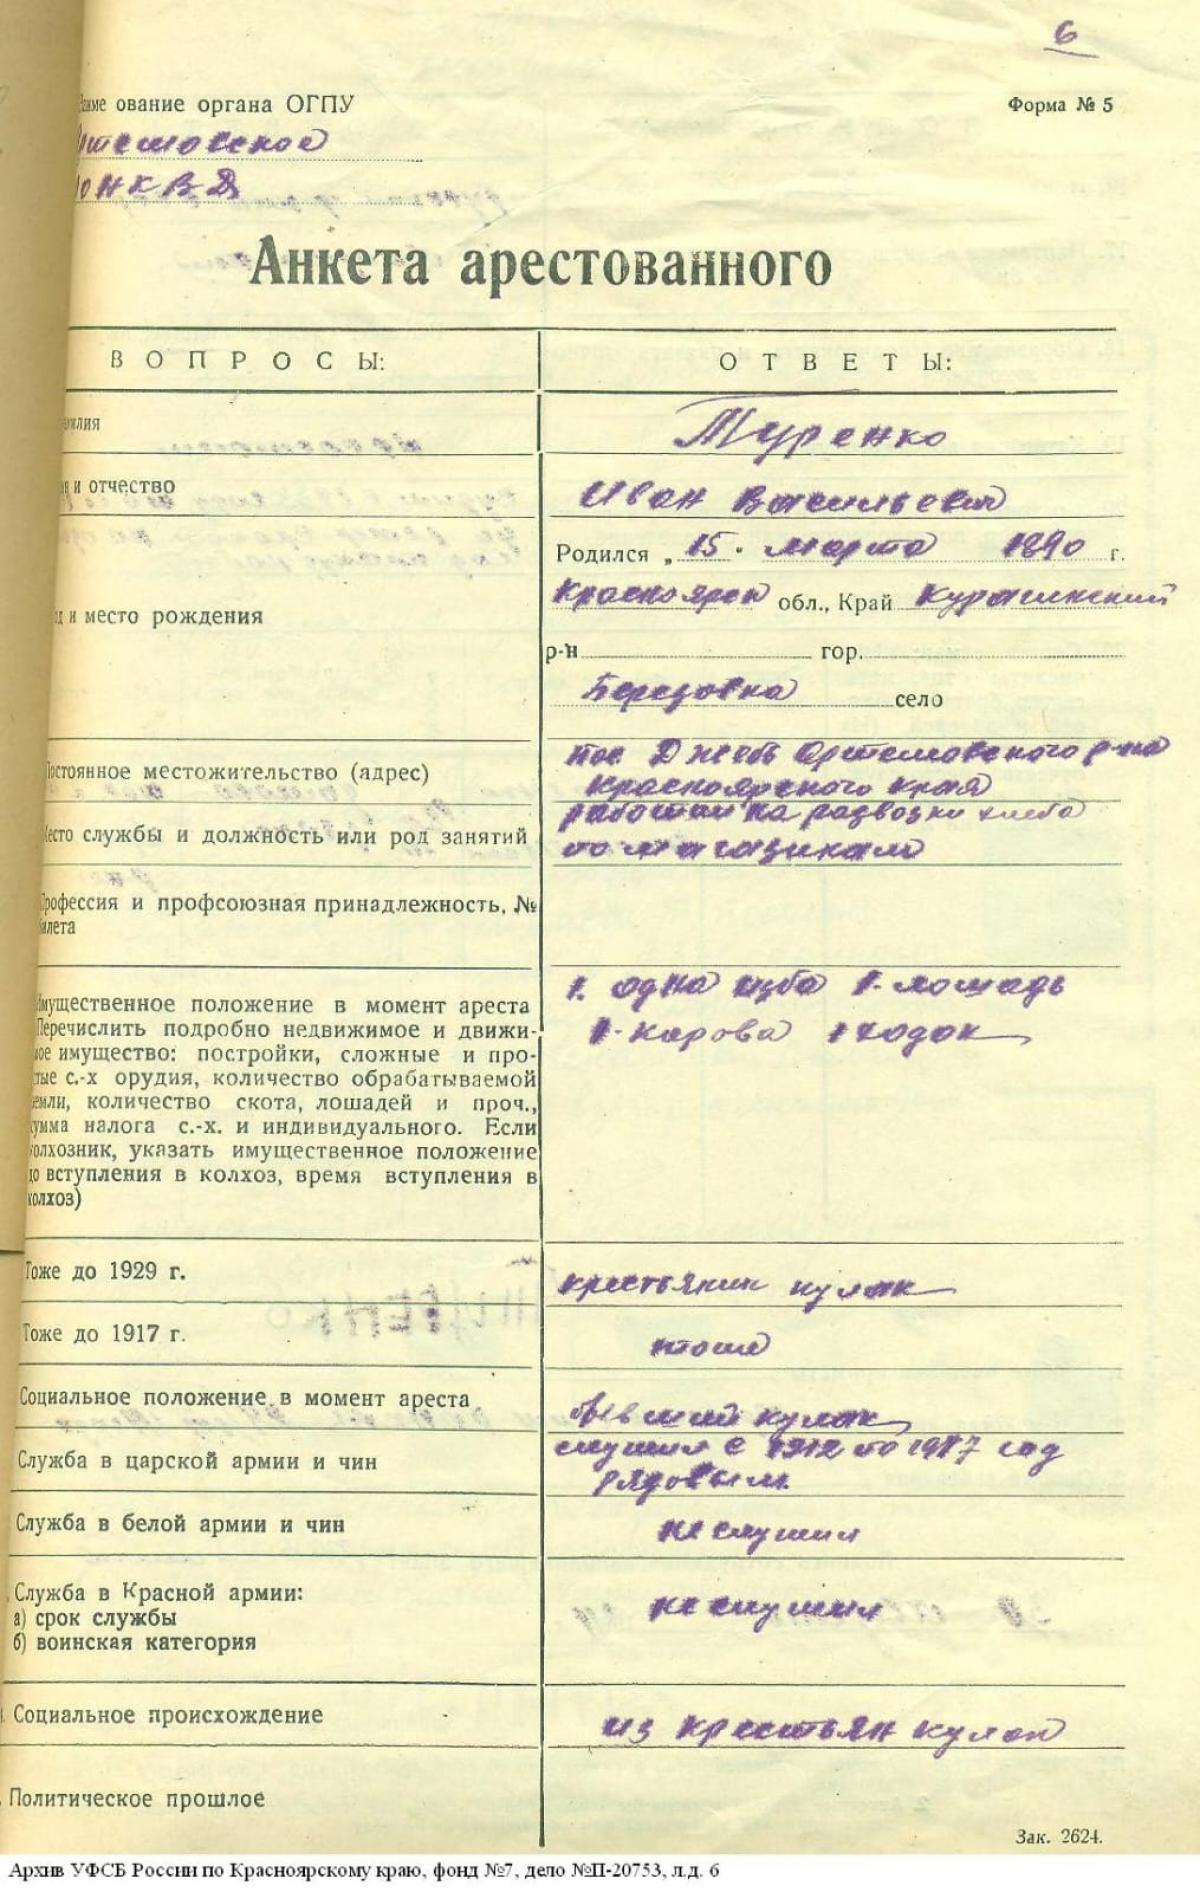 6
ование органа ОГПУ
Форма № 5
НКВД
Анкета арестованного
ВОПРОСЫ:
ОТВЕТЫ:
Туренко
и отчество
Иван Васильевич
Родился „ 15 " марта 1890 г.
Краснояреск обл., Край Курагинский
и место рождения
р-н гор.
Березовка село
пос Джебь Артемовского р-на
Красноярского края
остоянное местожительство (адрес)
работал на развозки хлеба
есто службы и должность или род занятий
по магазинам
рофессия и профсоюзная принадлежность, №
илета
1. одна изба 1. лошадь
мущественное положение в момент ареста
1. карова 1 ходок
Перечислить подробно недвижимое и движи-
ое имущество: постройки, сложные и про-
тые с.-х орудия, количество обрабатываемой
емли, количество скота, лошадей и проч.,
умма налога с.-х. и индивидуального. Если
олхозник, указать имущественное положение
до вступления в колхоз, время вступления в
колхоз)
Тоже до 1929 г.
крестьянин кулак
Тоже до 1917 г.
тоже
Социальное положение в момент ареста
бывший кулак
служил с 1912 по 1917 год
Служба в царской армии и чин
рядовым.
Служба в белой армии и чин
не служил
Служба в Красной армии:
а) срок службы
не служил
б) воинская категория
Социальное происхождение
из крестьян кулак
Политическое прошлое
Зак. 2624.
Архив УФСБ России по Красноярскому краю, фонд №7, дело №П-20753, л.д. 6